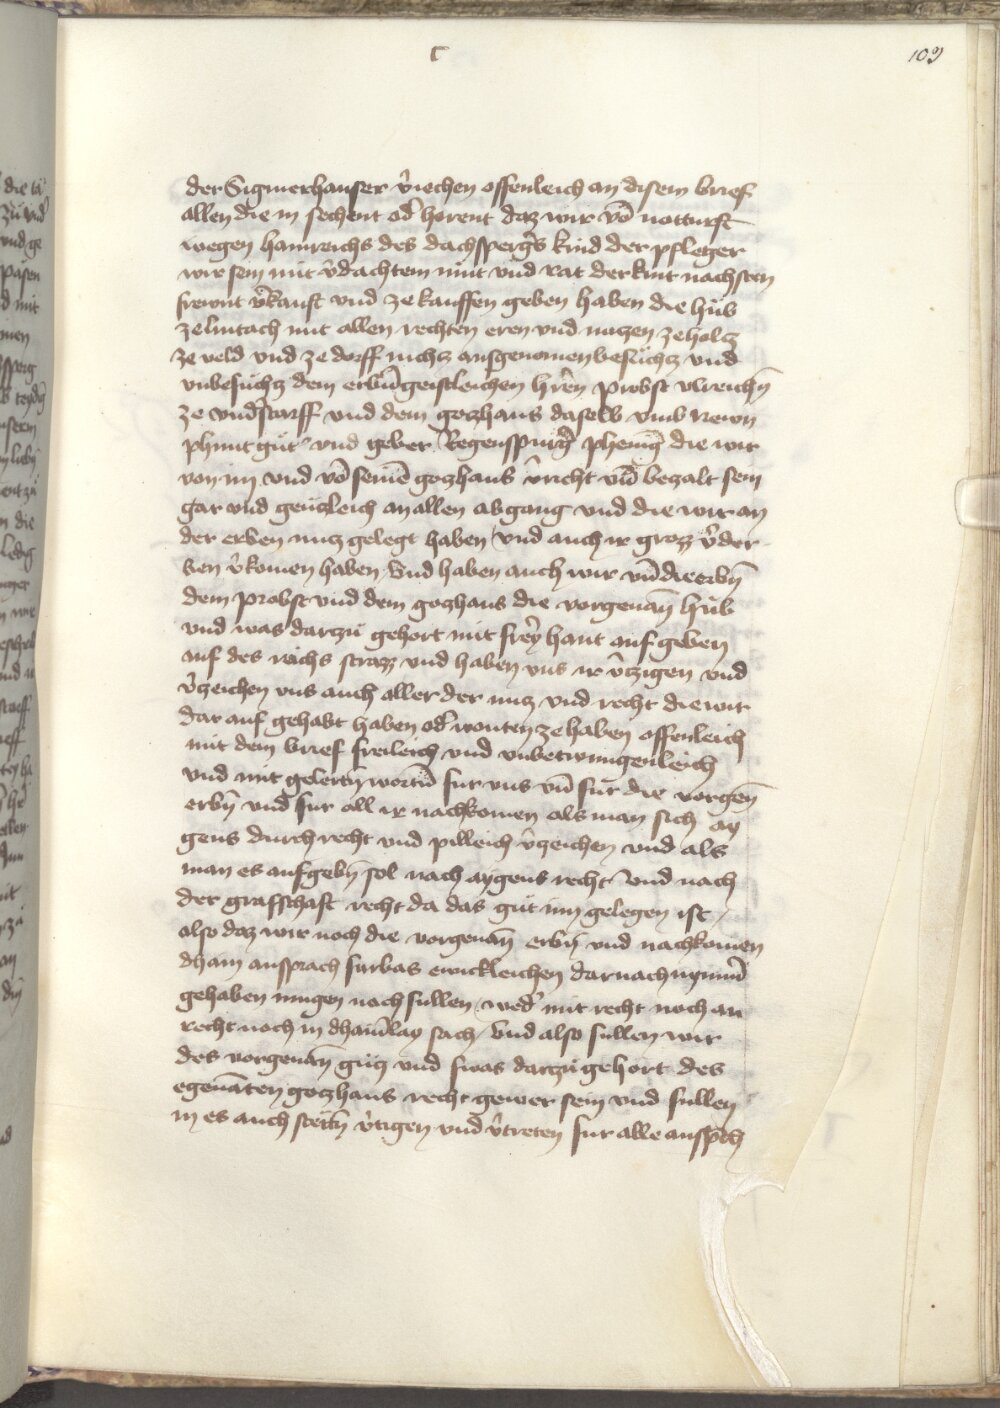 C
103
der Sigmerhauser v̂iechen offenleich an disem brief
allen die in sechent od̄ horent daz wir võ notturft
wegen hainreichs des dachsperḡs kind der pfleger
wir sein mit v̂dachtem mut vnd rat der kint nachsten
frewnt v̂kauft vnd ze kauffen geben haben die hůb
ze lintach mit allen rechten eren vnd nutzen ze holtz
ze veld vnd ze dorff nichtz ausgenomen besůchtz vnd
vnbesůchtz dem erbū̄geistleichen hr̄en Probst vlreichn̄
ze vnd̄starff vnd dem gotzhaus daselb vmb newn
phunt gůt̄ vnd geber Regenspurḡ phenīg die wir
von im vnd võ seinē gotzhaus v̂richt vn̄ bezalt sein
gar vnd gentzleich an allen abgang vnd die wir an
der erben nutz gelegt haben vnd auch ir grozz v̂der
ben v̂komen haben Vnd haben auch wir vn̄ die erbn̄
dem Probst vnd dem gotzhaus die vorgenan̄ hůb
vnd was dartzů gehort mit frey hant auf geben
auf des reichs strazz vnd haben vns ir v̂tzigen vnd
v̂tzeichen vns auch aller der nutz vnd recht die wir
dar auf gehabt haben od̄ wonten ze haben offenleich
mit dem brief freileich vnd vnbetwungenleich
vnd mit gelertn̄ wortn̄ fur vns vn̄ fur die vorgen̄
erbn̄ vnd fur all ir nachkomen als man sich ay
gens durch recht vnd pilleich v̂tzeichen vnd als
man es aufgebn̄ sol nach aygens recht vnd nach
der grafschaft recht da das gůt inn gelegen ist
also daz wir noch die vorgenan̄ erbn̄ vnd nachkomen
dhain ansprach furbas ewickleichen darnach nymm̄
gehaben mugen noch sullen wed̄ mit recht noch an
recht noch in dhain̄lay sach Vnd also sullen wir
des vorgenan̄ gůtz vnd swas dartzů gehort des
egenāten gotzhaus recht gewer sein vnd sullen
in es auch stetn̄ v̂tigen vnd v̂treten fur alle ansp̄ch